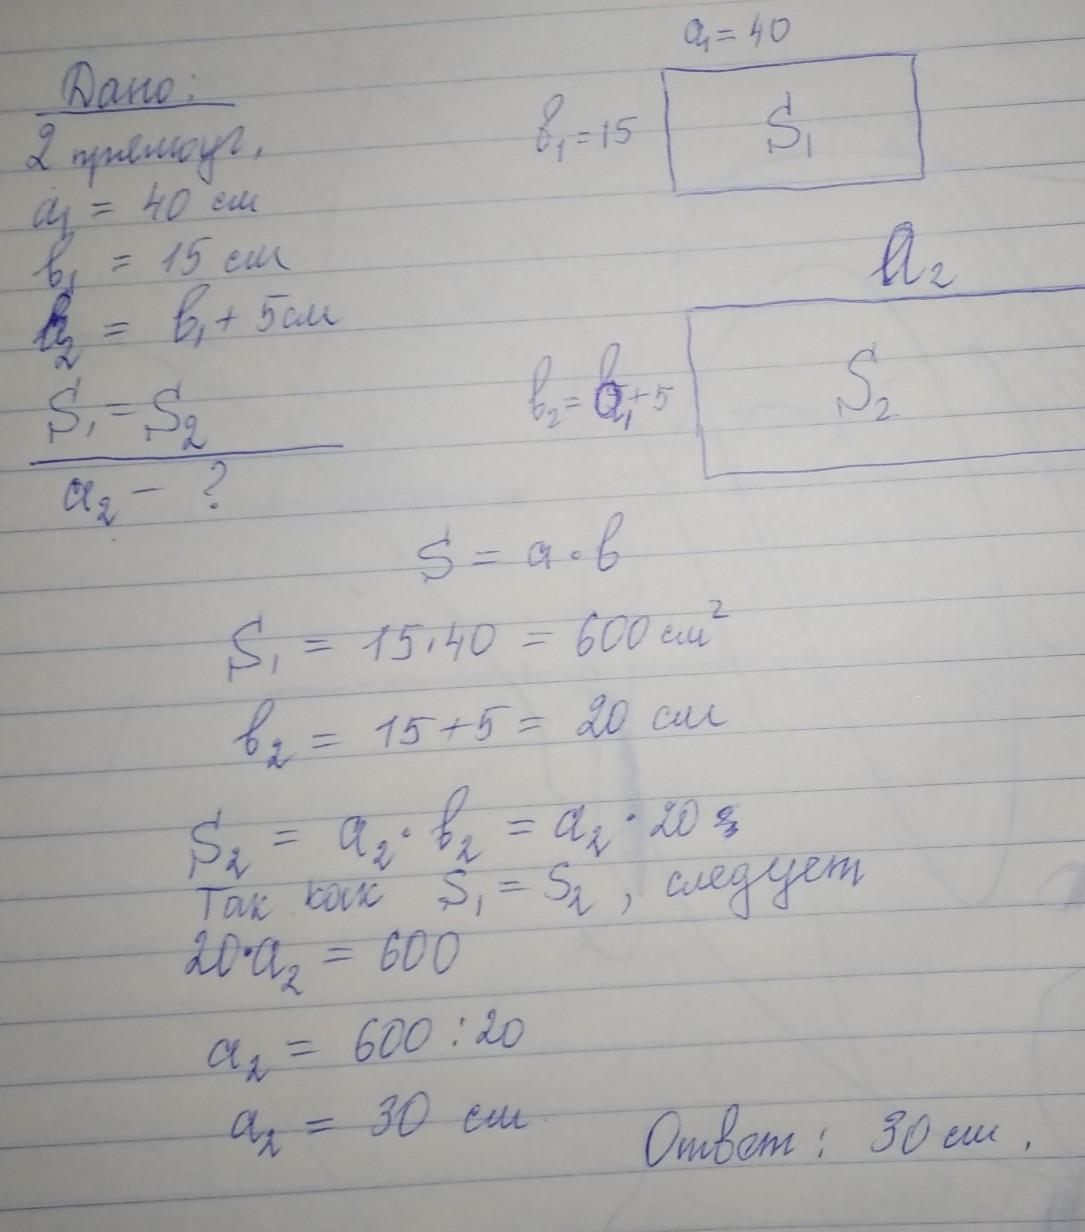 Дано:
2 прямоуг.
a₁ = 40 см
b₁ = 15 см
b₂ = b₁ + 5см
S₁ = S₂
a₂ - ?
a₁ = 40
b₁ = 15
S₁
a₂
b₂ = b₁ + 5
S₂
S = a · b
S₁ = 15 · 40 = 600 см²
b₂ = 15 + 5 = 20 см
S₂ = a₂ · b₂ = a₂ · 20
Так как S₁ = S₂, следует
20 · a₂ = 600
a₂ = 600 : 20
a₂ = 30 см
Ответ: 30 см.